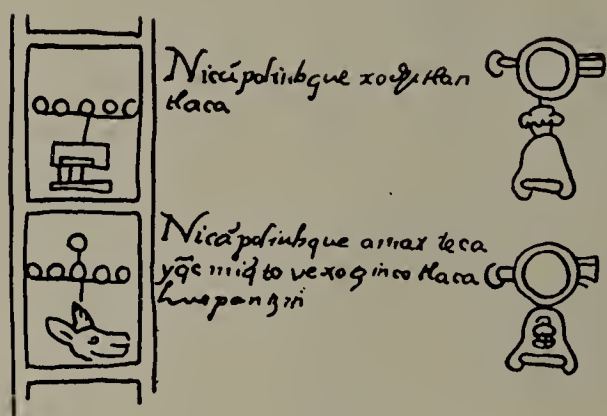 Nicā poliuhque xochitlan
tlaca
Nicā poliuhque amaxteca
yq̄c miq̄to vexoçinco tlaca